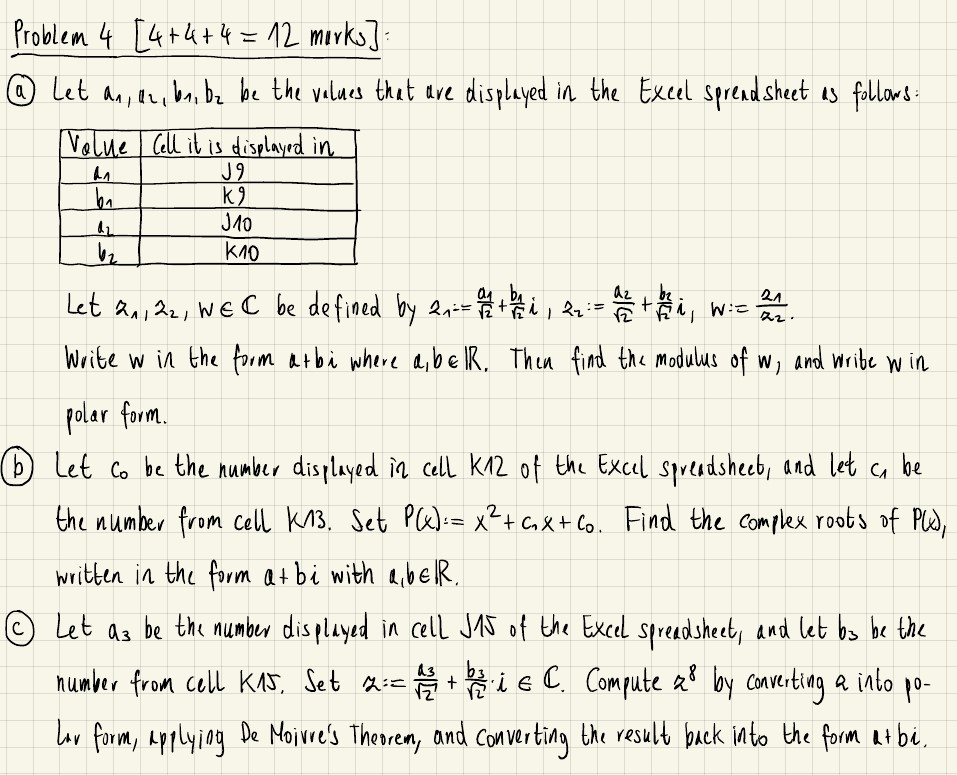 Problem 4 [4+4+4 = 12 marks]:
(a) Let a₁, a₂, b₁, b₂ be the values that are displayed in the Excel spreadsheet as follows:
Value | Cell it is displayed in
a₁ | J9
b₁ | K9
a₂ | J10
b₂ | K10
Let z₁, z₂, w ∈ C be defined by z₁ := a₁/√2 + b₁/√2 i, z₂ := a₂/√2 + b₂/√2 i, w := z₁/z₂.
Write w in the form a+bi where a,b ∈ ℝ. Then find the modulus of w, and write w in
polar form.
(b) Let c₀ be the number displayed in cell K12 of the Excel spreadsheet, and let c₁ be
the number from cell K13. Set P(x) := x² + c₁x + c₀. Find the complex roots of P(x),
written in the form a+bi with a,b ∈ ℝ.
(c) Let a₃ be the number displayed in cell J15 of the Excel spreadsheet, and let b₃ be the
number from cell K15. Set z := a₃/√2 + b₃/√2 · i ∈ ℂ. Compute z⁸ by converting z into po-
lar form, applying De Moivre's Theorem, and converting the result back into the form a+bi.